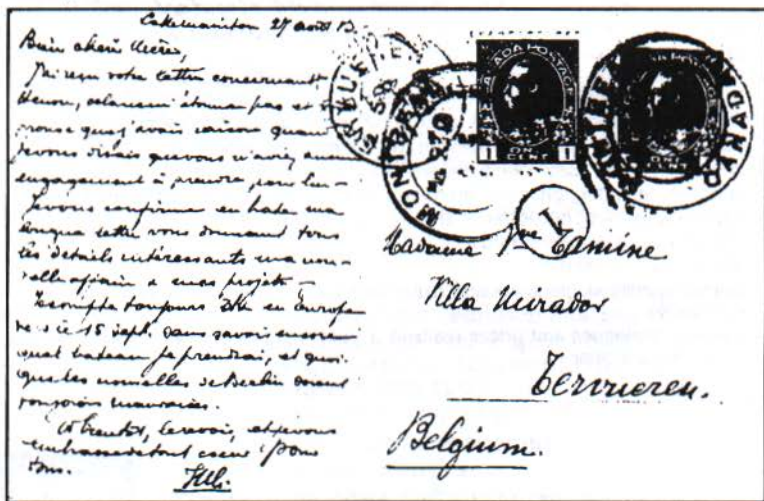 27 août 13
Bien chère Mère,
J'ai reçu votre lettre concernant
cela ne m'étonne pas et
prouve que j'avais raison quand
je vous disais que vous n'aviez aucun
engagement à prendre pour lui –
Je vous confirme en hâte ma
longue lettre vous donnant tous
les détails intéressants ma nou-
velle affaire & mes projets –
Je compte toujours être en Europe
vers le 15 sept. sans savoir encore
quel bateau je prendrai, et quoi-
que les nouvelles de Berlin soient
toujours mauvaises.
A bientôt, le revoir, et je vous
embrasse de tout coeur pour
tous.
MONTREAL
CANADA
CANADA POSTAGE
1 CENT 1
1
Madame Tamine
Villa Mirador
Tervueren.
Belgium.